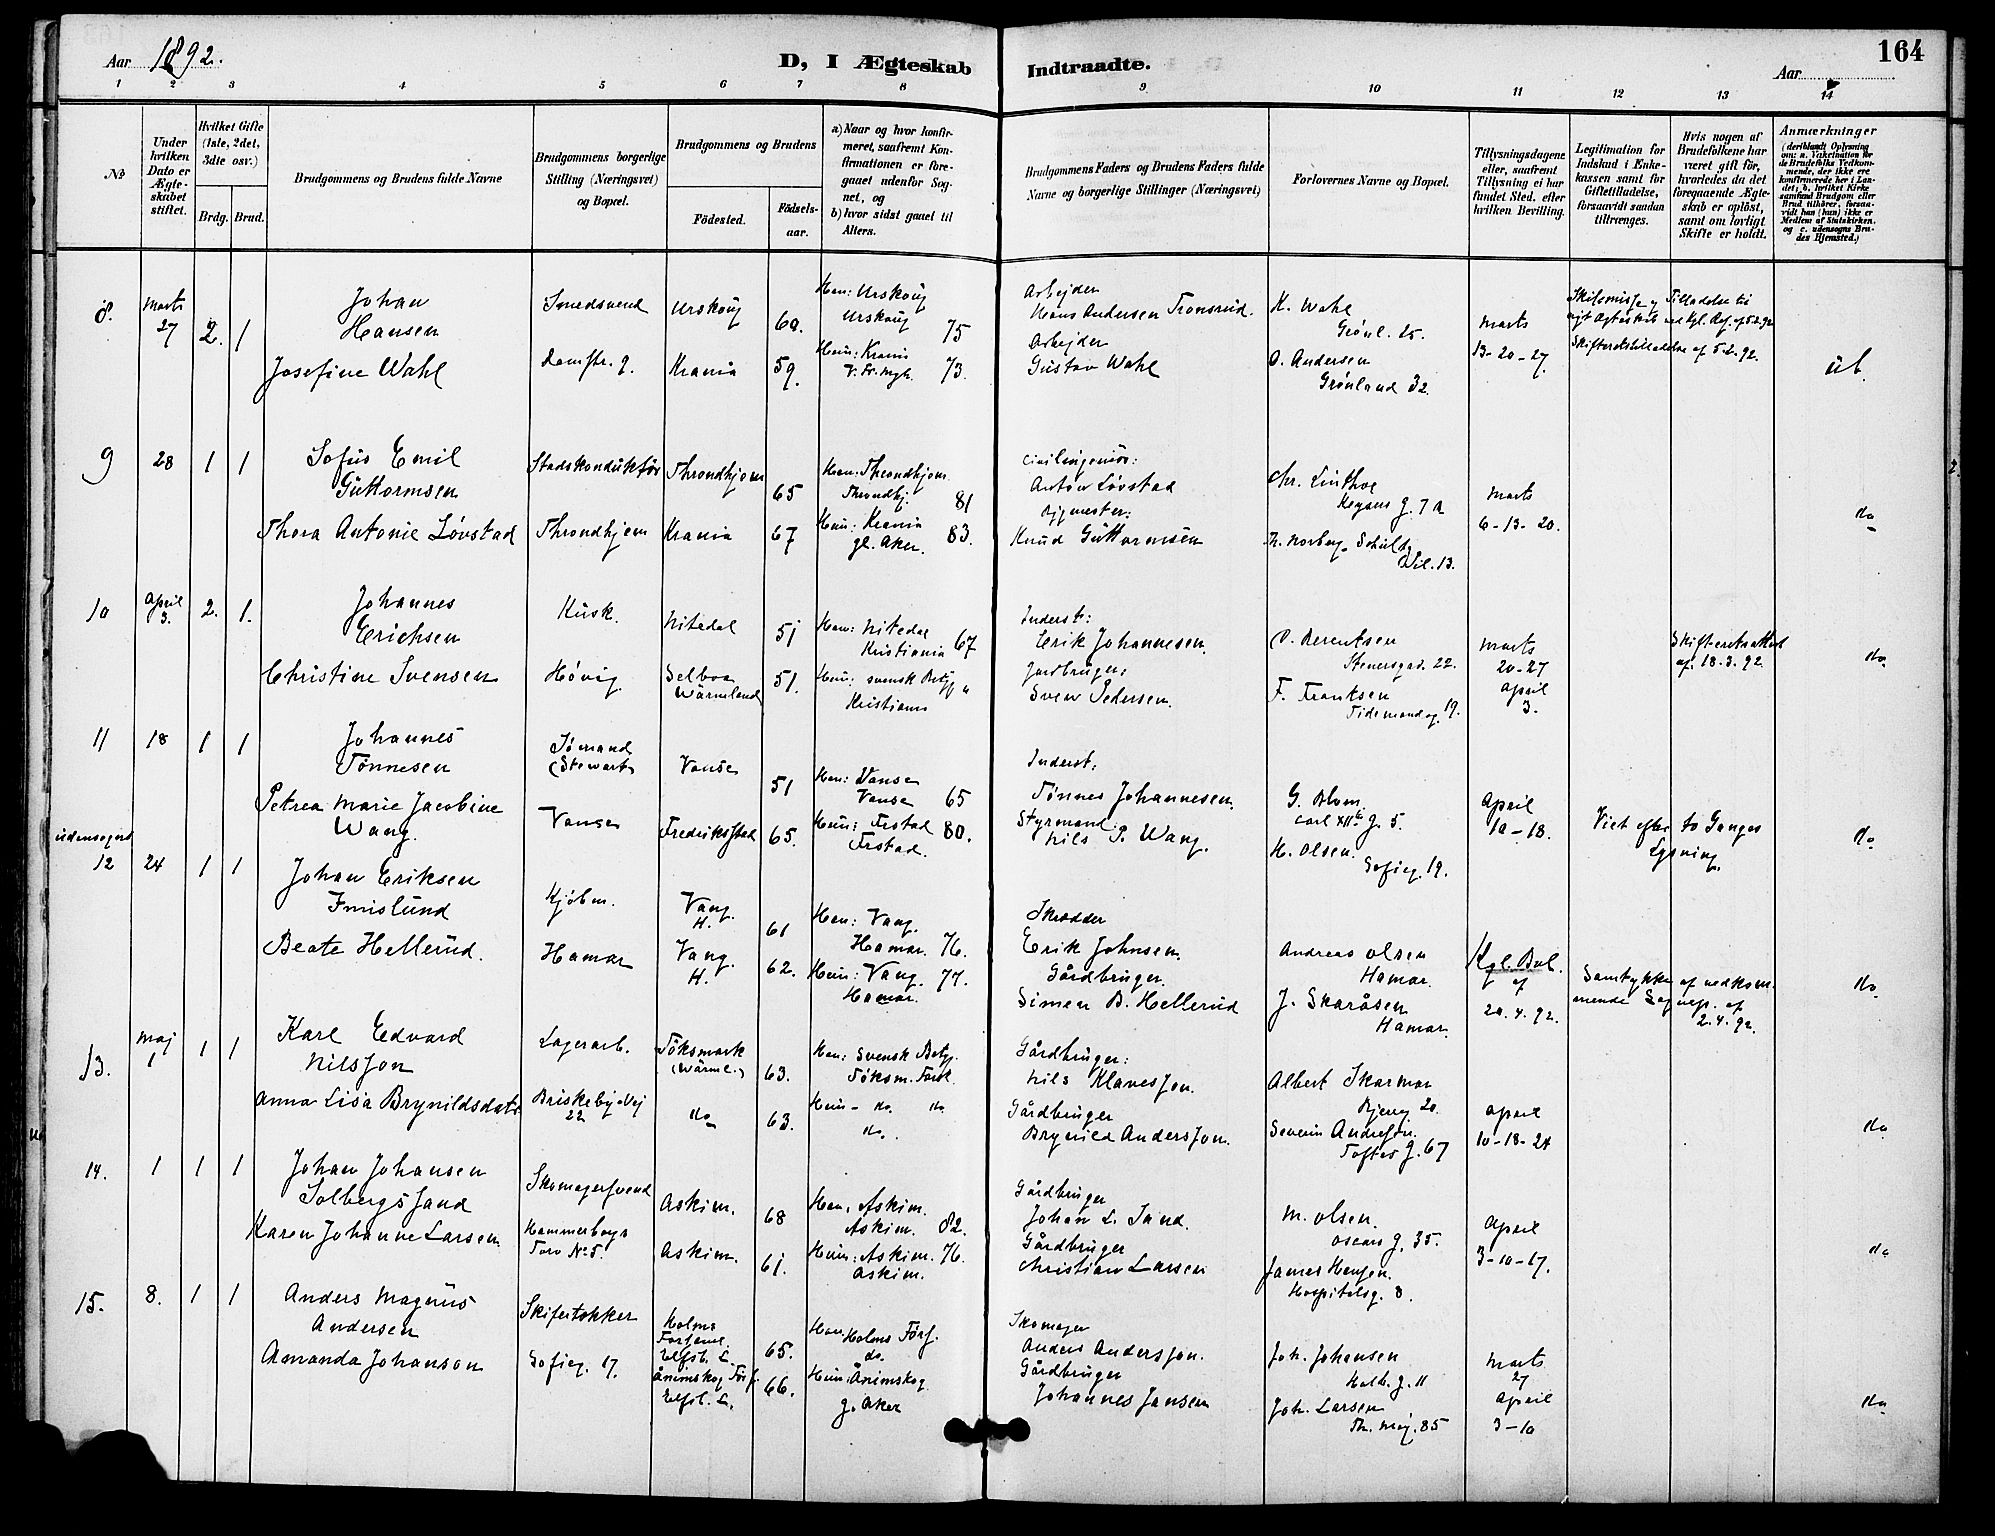 Aar 1892.
D, I Ægteskab Indtraadte.
164
Aar
1 2 3 4 5 6 7 8 9 10 11 12 13 14
No
Under hvilken Dato er Ægteskabet stiftet.
Hvilket Gifte (1ste, 2det, 3die osv.)
Brdg. Brud.
Brudgommens og Brudens fulde Navne
Brudgommens borgerlige Stilling (Næringsvei) og Bopæl.
Brudgommens og Brudens
Fødested. Fødselsaar.
a) Naar og hvor konfirmeret, saafremt Konfirmationen er foregaaet udenfor Sognet, og
b) hvor sidst gaaet til Alters.
Brudgommens Faders og Brudens Faders fulde Navne og borgerlige Stillinger (Næringsvei)
Forlovernes Navne og Bopæl.
Tillysningsdagene eller, saafremt Tillysning ei har fundet Sted, efter hvilken Bevilling.
Legitimation for Indskud i Enkekassen samt for Giftetilladelse, forsaavidt saadan tiltrænges.
Hvis nogen af Brudefolkene har været gift før, hvorledes da det foregaaende Ægteskab er opløst, samt om lovligt Skifte er holdt.
Anmærkninger
(deriblandt Oplysning om: a. Vakcination for de Brudefolks Vedkommende, der ikke ere konfirmerede her i Landet, b. hvilket Kirkesamfund Brudgom eller Brud tilhører, forsaavidt han (hun) ikke er Medlem af Statskirken, og c. udensogns Brudes Hjemsted.)
8. Marts 27 2. 1
Johan Hansen
Josefine Wahl
Smedsvend
Urskoug 60.
Krania 59.
Han: Urskoug Urskoug 75
Hun: Krania 73.
Arbejder Hans Andersen Tronsrud.
Arbejder Gustav Wahl
K. Wahl Grönl. 25.
O. Andersen Grønland 32
Marts 13-20-27.
Skilsmisse og Tilladelse til nyt Ægteskab ved Kgl. Res. af 5.2.92
Skifteretstilladelse af 5.2.92.
ub.
9 28 1 1
Sofus Emil Guttormsen
Thora Antonie Lövstad
Stadskonduktør
Throndhjem
Throndhjem 65
Krania 67
Han: Throndhjem Throndhj. 81
Hun: Krania gl. Aker. 83.
Civilingeniör: Anton Lövstad
Bygmester: Knud Guttormsen
Chr. Linthoe Keysers g. 7 a
Th. Norberg Schultz Wil. 13.
Marts 6-13-20.
do
10 April 3. 2. 1.
Johannes Erichsen
Christine Svensen
Kusk.
Hövig
Nitedal 51
Selboa Wärmland 51.
Han: Nitedal Kristiania 67
Hun: svensk Betyg Kristiania
Inderst: Erik Johannesen.
Jordbruger: Sven Pedersen.
O. Berentsen Stenersgad. 22.
F. Franksen Tidemandsg. 19.
Marts 20-27 April 3.
Skifteretsattest af 18.3.92
do
11 18 1 1
Johannes Tönnesen
Petrea Marie Jacobine Wang.
Sömand (Stewart)
Vanse
Vanse 51
Fredriksstad 65.
Han: Vanse Vanse 65
Hun: Frstad Frstad. 80.
Inderst: Tönnes Johannesen.
Styrmand: Nils P. Wang.
G. Blom Carl XIIte g. 5.
K. Olsen. Sofieg. 19.
April 10-18.
Viet efter to Ganges Lysning.
do
udensogns
12 24 1 1
Johan Eriksen Imislund
Beate Hellerud.
Kjöbm.
Hamar
Vang. H. 61
Vang. H. 62.
Han: Vang. Hamar. 76.
Hun: Vang. Hamar. 77.
Skrædder Erik Johnsen.
Gårdbruger. Simen B. Hellerud
Andreas Olsen Hamar.
J. Skaråsen Hamar.
Kgl. Bev. af 20.4.92.
Samtykke af vedkommende Sognep. af 2.4.92.
do
13. Maj 1 1 1
Karl Edvard Nilsson
Anna Lisa Brynildsdatr
Lagerarb.
Briskeby-Vej 22
Töksmark (Wärml.) 63.
do 63.
Han: Svensk Betyg. Töksm. Fors.
Hun - do. do do.
Gårdbruger: Nils Klavesson.
Gårdbruger Brynild Andersson.
Albert Skarmar Bjerg. 20.
Severin Andresen. Toftes g. 67
April 10-18-24
do
14. 1 1 1
Johan Johansen Solbergssand
Karen Johanne Larsen.
Skomagersvend
Hammerborgs Torv No 5.
Askim. 68
Askim. 61.
Han: Askim. Askim. 82.
Hun: Askim. Askim. 76.
Gårdbruger Johan L. Sand.
Gårdbruger Christian Larsen
M. Olsen. Oscars g. 35.
James Hansen. Hospitalsg. 8.
April 3-10-17.
do
15. 8. 1 1
Anders Magnus Andersen
Amanda Johanson
Skifertækker
Sofieg. 17
Holms Elfsb. L. 65.
Ånimskog Förs. Elfsb. L. 66.
Han: Holms Förs. do.
Hun: Ånimskog g. Aker
Skomager Anders Andersson.
Gårdbruger Johannes Jansen
Joh. Johansen Holb. g. 11
Joh. Larsen Th. Mej. 85
Marts 27 April 3-10
do